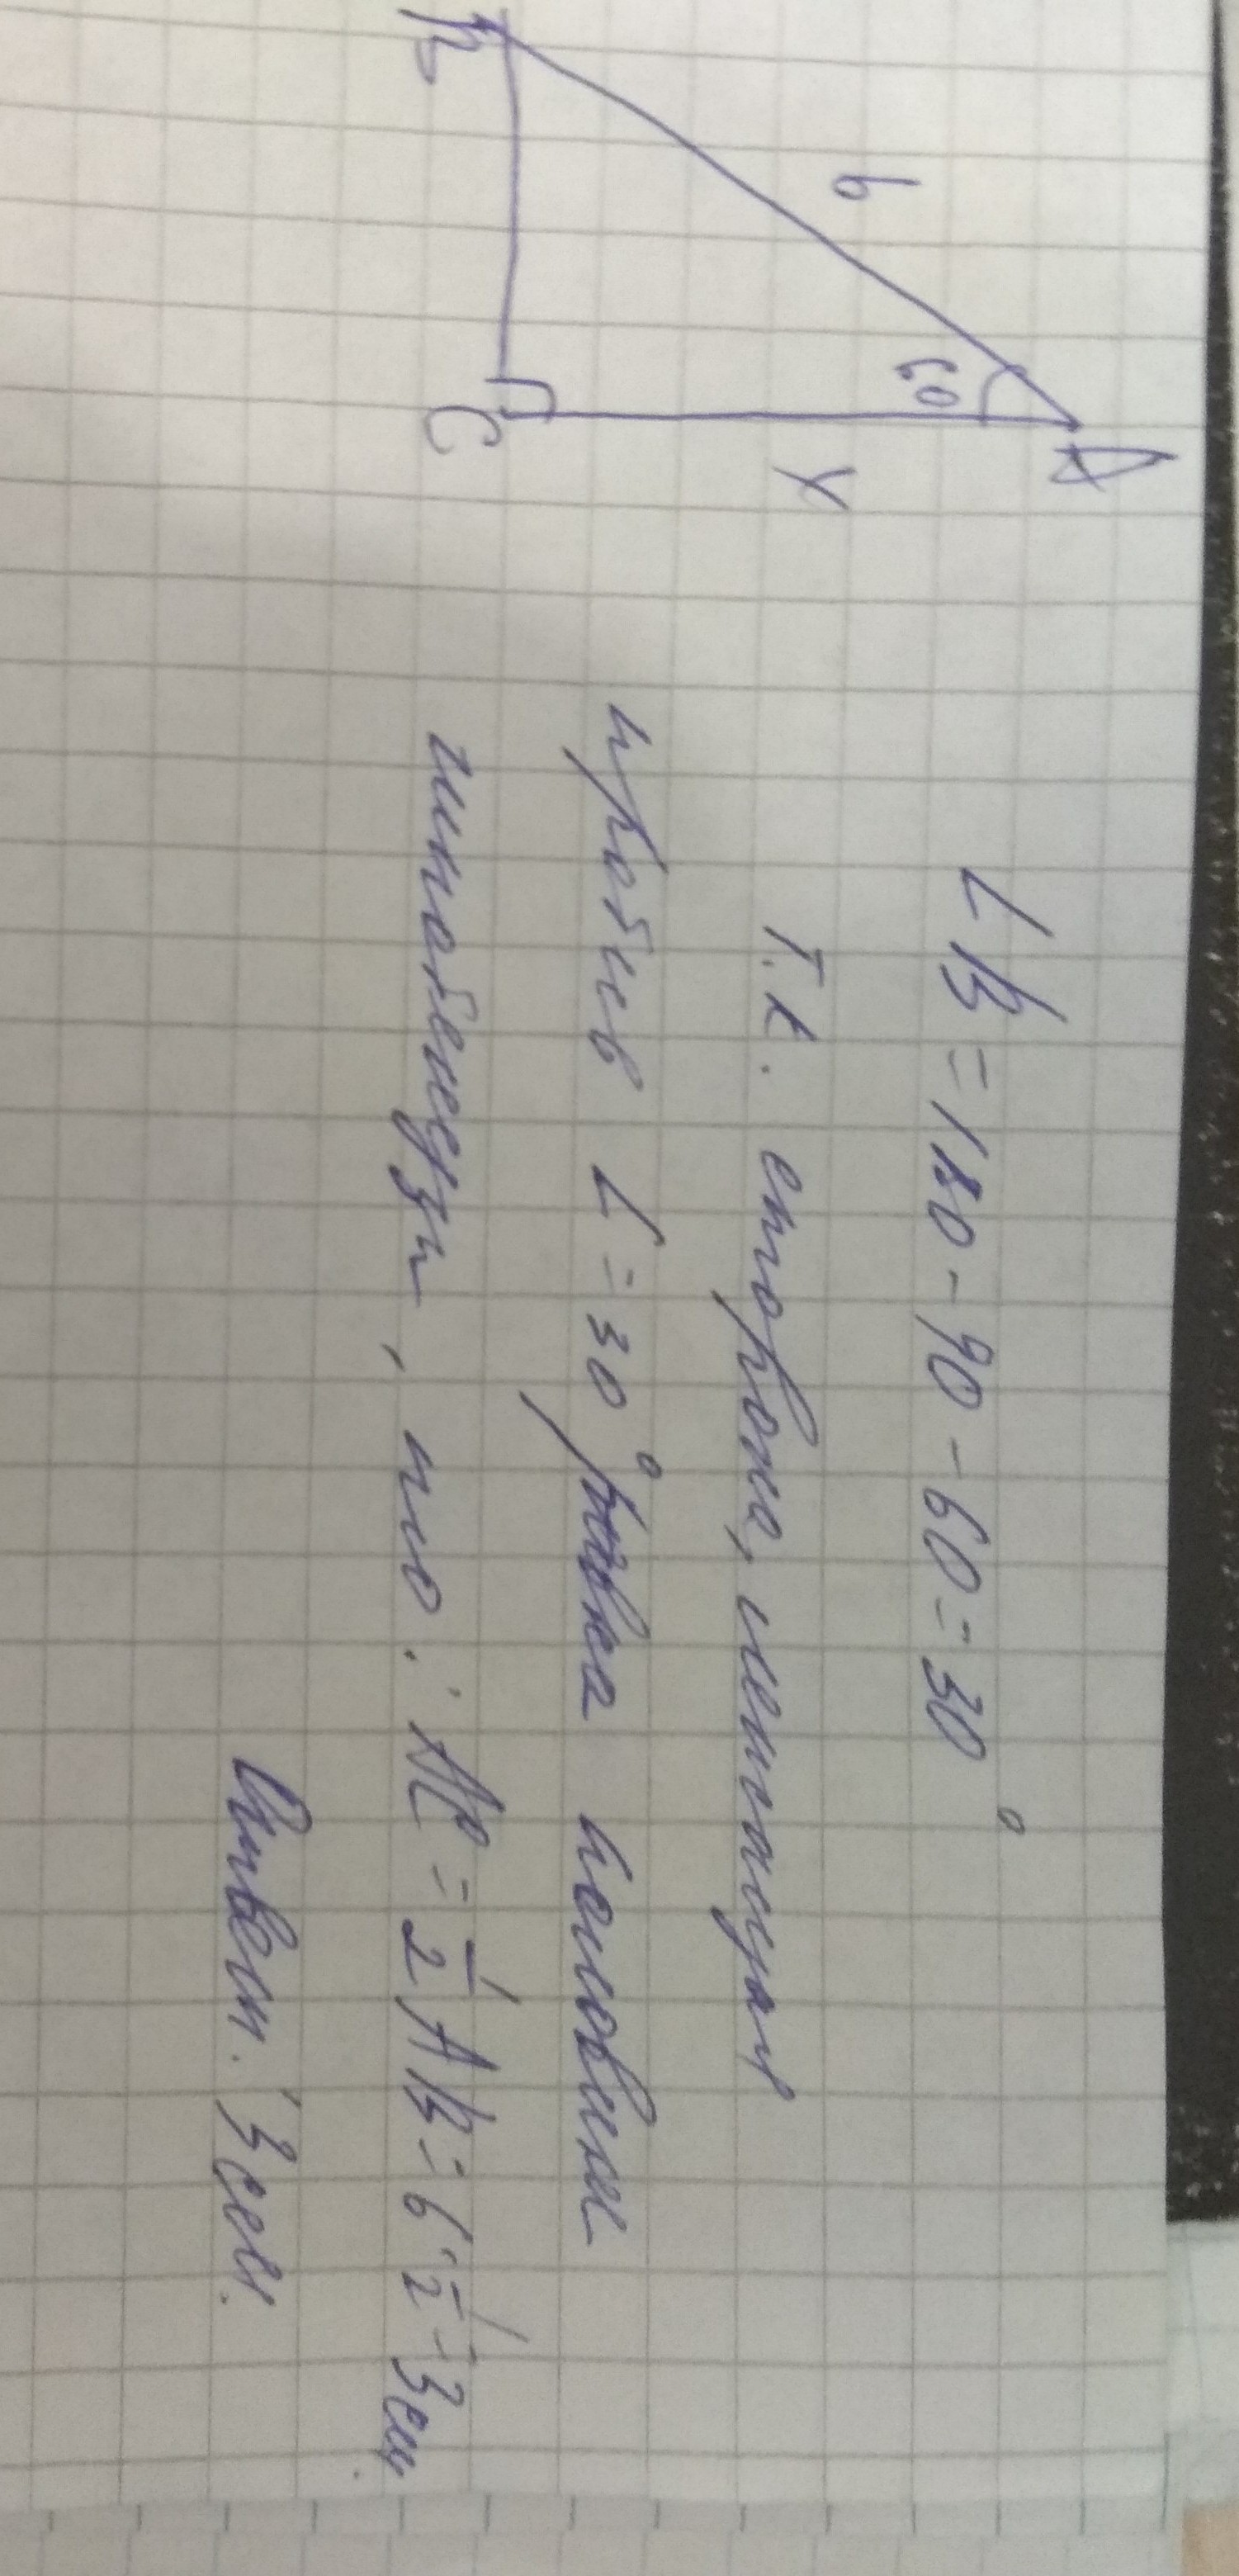 A
6
60
x
B
C
∠B = 180 - 90 - 60 = 30°
Т.к. сторона, лежащая
против ∠ = 30° равна половине
гипотенузы, то: AC = 1/2 AB = 6 · 1/2 = 3 см.
Ответ: 3 см.